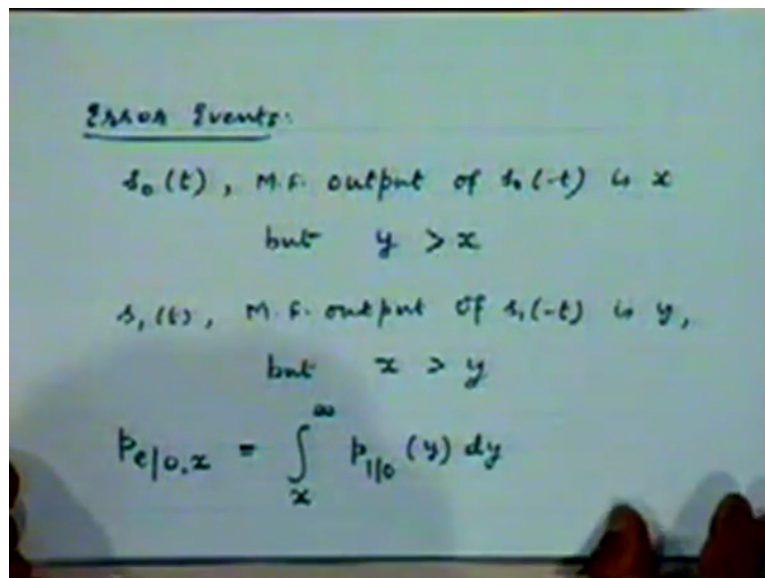 Error Events:
s₀(t), M.F. output of s₀(-t) is x
but y > x
s₁(t), M.F. output of s₁(-t) is y,
but x > y
p_{e|0,x} = ∫_x^∞ p_{1|0}(y) dy